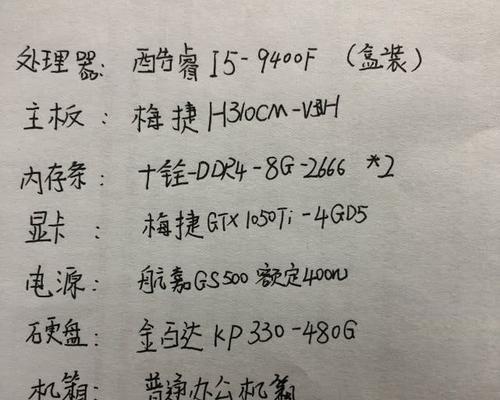 处理器: 酷睿 I5-9400F (盒装)
主板: 梅捷 H310CM-VBH
内存条: 十铨-DDR4-8G-2666 *2
显卡: 梅捷GTX1050Ti-4GD5
电源: 航嘉GS500 额定400W
硬盘: 金百达 KP330-480G
机箱: 普通办公机箱